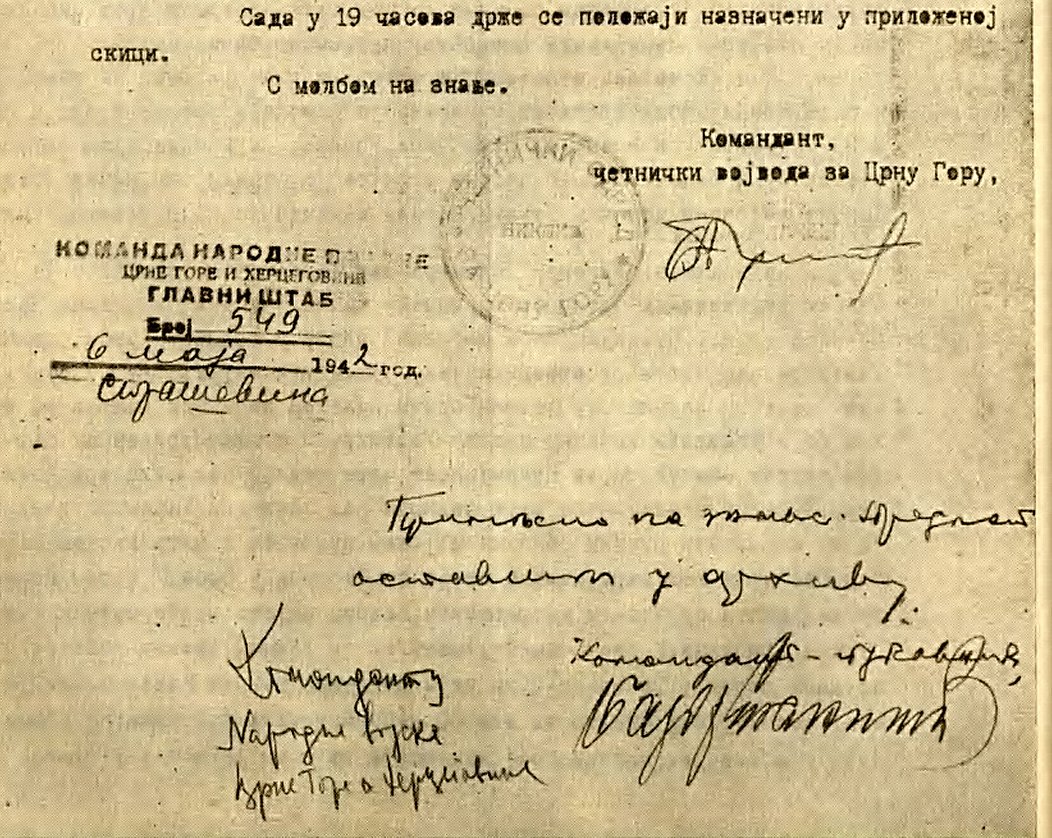 Сада у 19 часова држе се положаји назначени у приложеној
скици.
С молбом на знање.
Командант,
четнички војвода за Црну Гору,
КОМАНДА НАРОДНЕ
ЦРНЕ ГОРЕ И ХЕРЦЕГОВИНЕ
ГЛАВНИ ШТАБ
Број 549
6 маја 1942 год.
Страшевина
Примљено на знање. Предмет
оставити у архиву.
Командант - пуковник,
Команданту
Народне војске
Црне Горе и Херцеговине